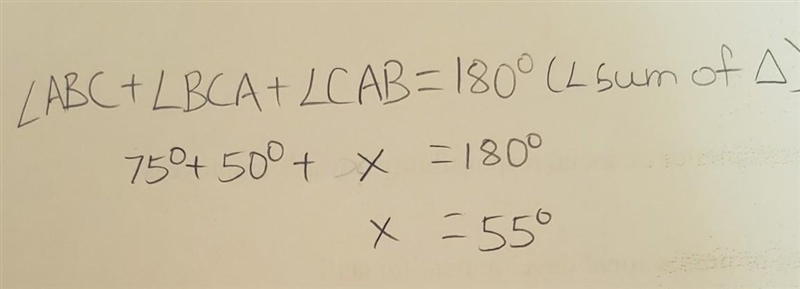 ∠ABC+∠BCA+∠CAB=180° (∠sum of Δ)
75°+50°+ x =180°
x =55°